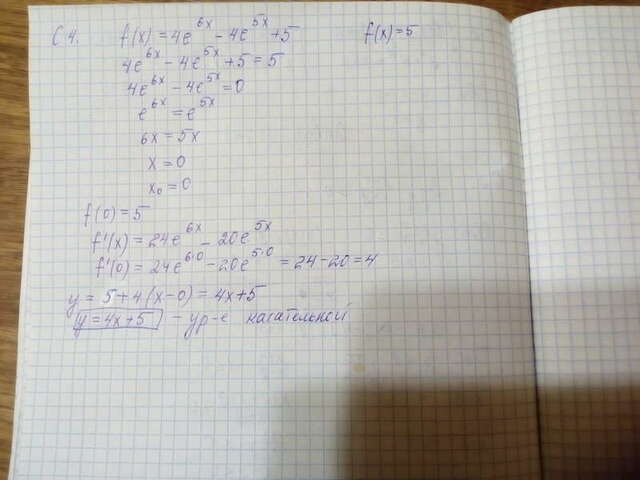 С4. f(x) = 4e^6x - 4e^5x + 5 f(x) = 5
4e^6x - 4e^5x + 5 = 5
4e^6x - 4e^5x = 0
e^6x = e^5x
6x = 5x
x = 0
x₀ = 0
f(0) = 5
f'(x) = 24e^6x - 20e^5x
f'(0) = 24e^6·0 - 20e^5·0 = 24 - 20 = 4
y = 5 + 4(x - 0) = 4x + 5
y = 4x + 5 - ур-е касательной